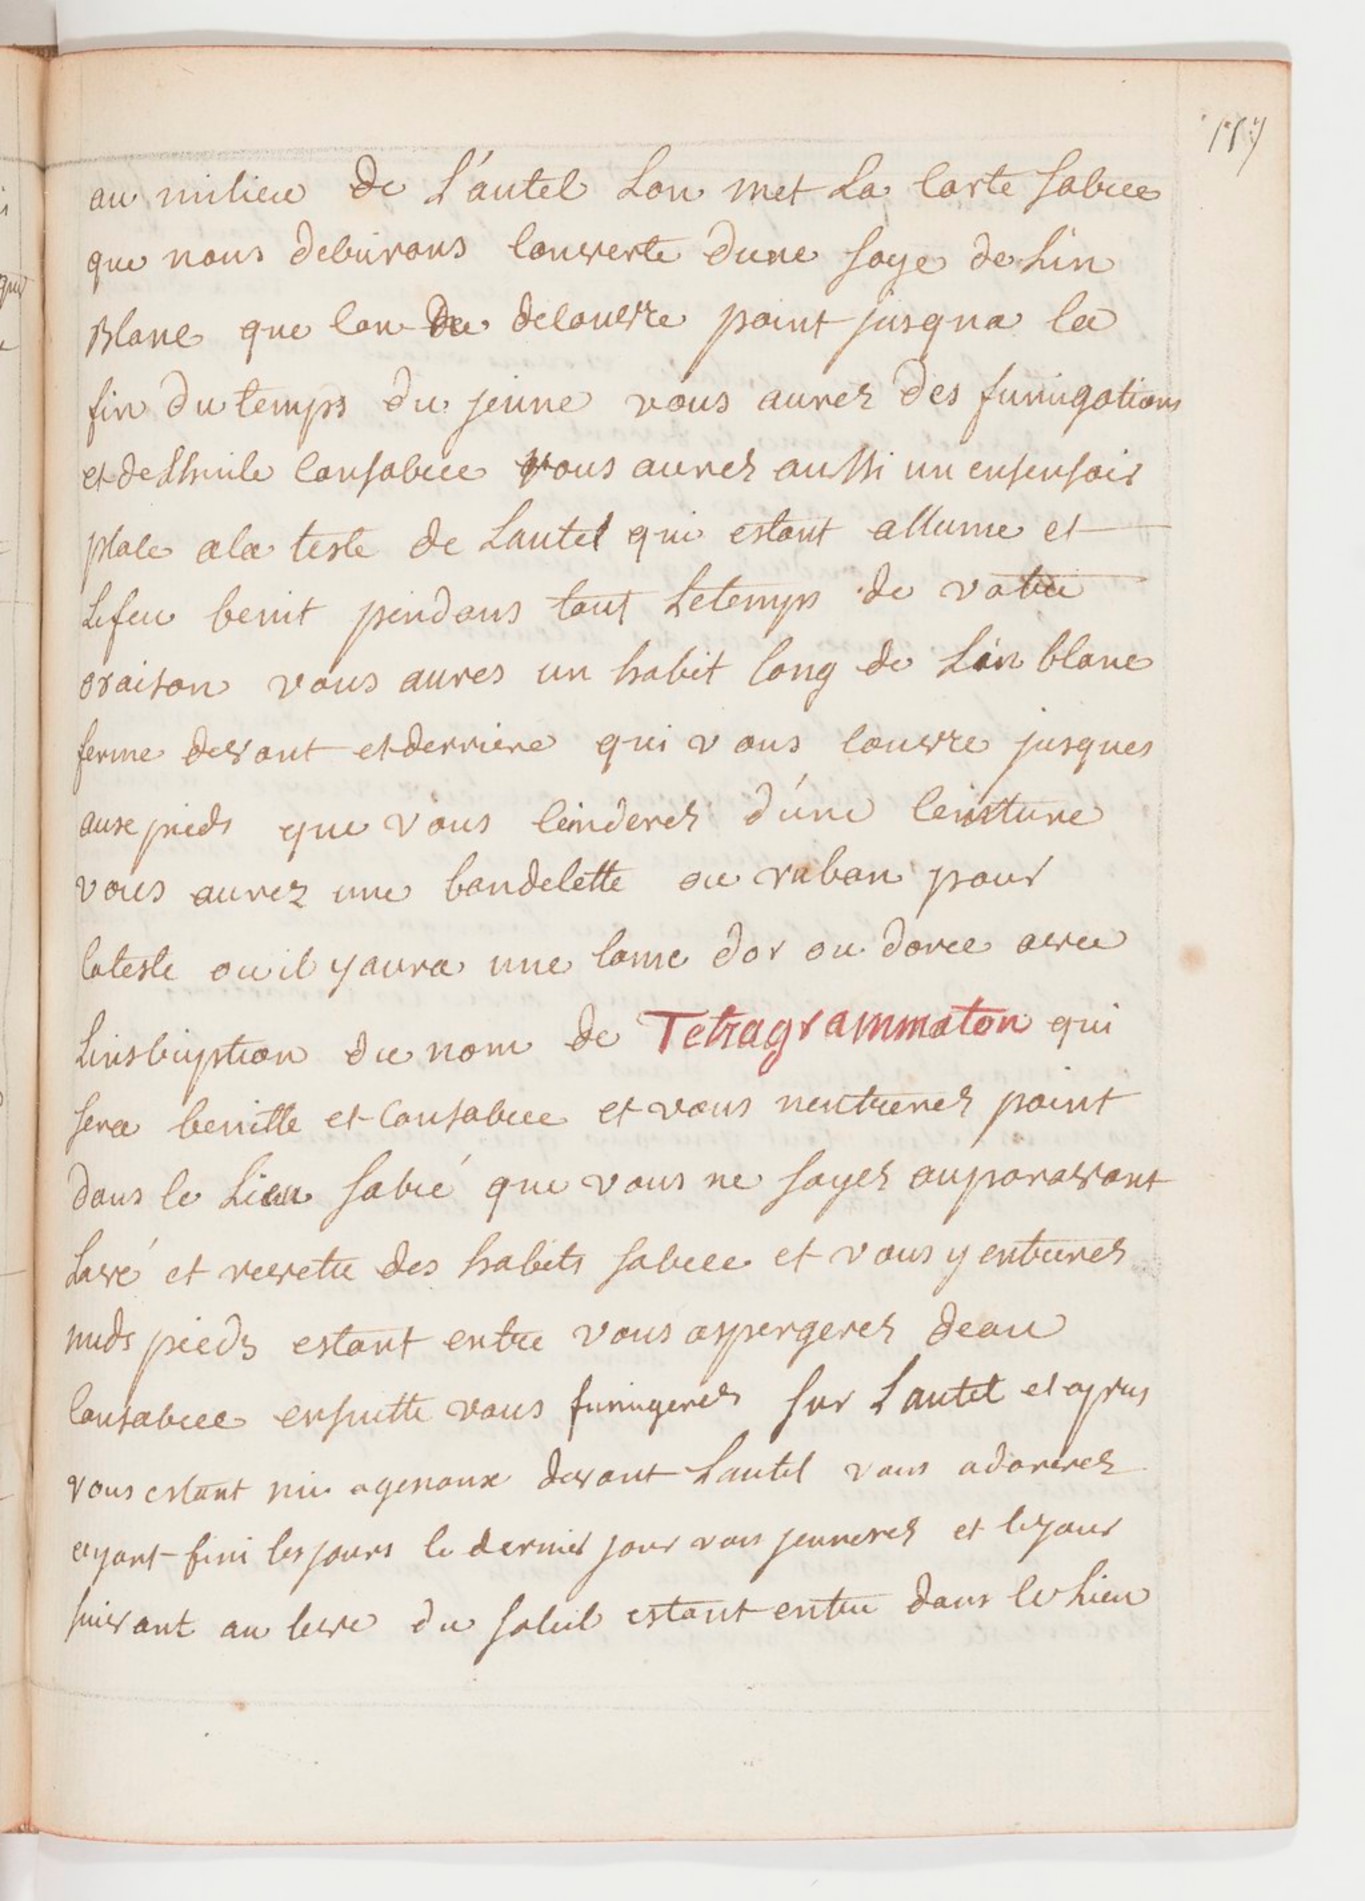 au milieu de L'autel Lon met La carte sacree
que nous decrirons couverte dune soye de Lin
Blanc que lon ne decouvre point jusqua la
fin du temps du jeune vous aurez des fumigations
et de Lhuile consacree vous aurez aussi un ensensoir
place a la teste de Lautel qui estant allume et
Le feu benit pendans tout Le temps de votre
oraison vous aures un habit long de Lin blanc
ferme devant et derriere qui vous couvre jusques
aux pieds que vous ceinderez d'une ceinture
vous aurez une bandelette ou ruban pour
la teste ou il y aura une lame dor ou doree avec
Linscription du nom de Tetragrammaton qui
sera benitte et Consacree et vous nentrerez point
dans le Lieu sacré que vous ne soyez auparavant
Lavé et revetu des habits sacree et vous y entrerez
nuds pieds estant entre vous aspergerez deau
Consacree ensuitte vous fumigerez sur L'autel et apres
vous estant mis a genoux devant Lautel vous adorerez
ayant fini les jours le dernier jour vous jeunerez et le jour
suivant au leve du soleil estant entre dans le Lieu